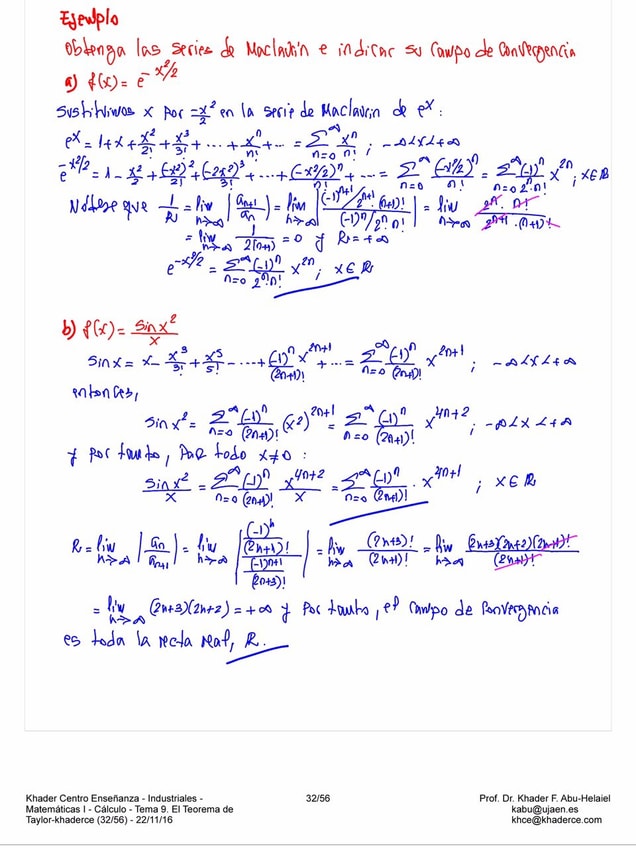 Ejemplo
Obtenga las series de Maclaurin e indicar su campo de convergencia
a) f(x) = e^{-x²/2}
Sustituimos x por -x²/2 en la serie de Maclaurin de e^x :
e^x = 1 + x + x²/2! + x³/3! + ... + x^n/n! + ... = ∑_{n=0}^∞ x^n/n! ; -∞ < x < +∞
e^{-x²/2} = 1 - x²/2 + (-x²)²/2! + (-2x²)³/3! + ... + (-x²/2)^n/n! + ... = ∑_{n=0}^∞ (-x²/2)^n/n! = ∑_{n=0}^∞ (-1)^n/(2^n·n!) x^{2n} ; x∈ℝ
Nótese que 1/R = lim_{n→∞} |a_{n+1}/a_n| = lim_{n→∞} |((-1)^{n+1}/2^{n+1}·(n+1)!)/((-1)^n/2^n·n!)| = lim_{n→∞} (2^n · n!)/(2^{n+1} · (n+1)!)
= lim_{n→∞} 1/(2(n+1)) = 0 y R = +∞
e^{-x²/2} = ∑_{n=0}^∞ (-1)^n/(2^n·n!) x^{2n} ; x∈ℝ
b) f(x) = sin x²/x
sin x = x - x³/3! + x⁵/5! - ... + (-1)^n/(2n+1)! x^{2n+1} + ... = ∑_{n=0}^∞ (-1)^n/(2n+1)! x^{2n+1} ; -∞ < x < +∞
entonces,
sin x² = ∑_{n=0}^∞ (-1)^n/(2n+1)! (x²)^{2n+1} = ∑_{n=0}^∞ (-1)^n/(2n+1)! x^{4n+2} ; -∞ < x < +∞
y por tanto, para todo x≠0 :
sin x²/x = ∑_{n=0}^∞ (-1)^n/(2n+1)! x^{4n+2}/x = ∑_{n=0}^∞ (-1)^n/(2n+1)! · x^{4n+1} ; x∈ℝ
R = lim_{n→∞} |a_n/a_{n+1}| = lim_{n→∞} |((-1)^n/(2n+1)!)/((-1)^{n+1}/(2n+3)!)| = lim_{n→∞} (2n+3)!/(2n+1)! = lim_{n→∞} (2n+3)(2n+2)(2n+1)!/(2n+1)!
= lim_{n→∞} (2n+3)(2n+2) = +∞ y por tanto, el campo de convergencia
es toda la recta real, ℝ.
Khader Centro Enseñanza - Industriales -
Matemáticas I - Cálculo - Tema 9. El Teorema de
Taylor-khaderce (32/56) - 22/11/16
32/56
Prof. Dr. Khader F. Abu-Helaiel
kabu@ujaen.es
khce@khaderce.com